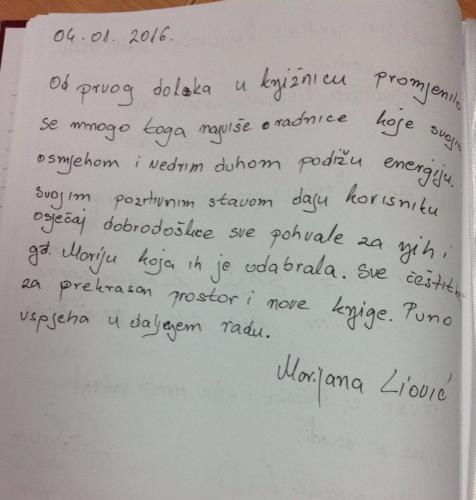 04.01.2016.
Od prvog dolaska u knjižnicu promjenilo
se mnogo toga najviše radnice koje svojim
osmjehom i vedrim duhom podižu energiju.
Svojim pozitivnim stavom daju korisniku
osječaj dobrodošlice sve pohvale za njih i
gđ. Mariju koja ih je odabrala. Sve čestitke
za prekrasan prostor i nove knjige. Puno
uspjeha u daljnjem radu.
Marijana Liović